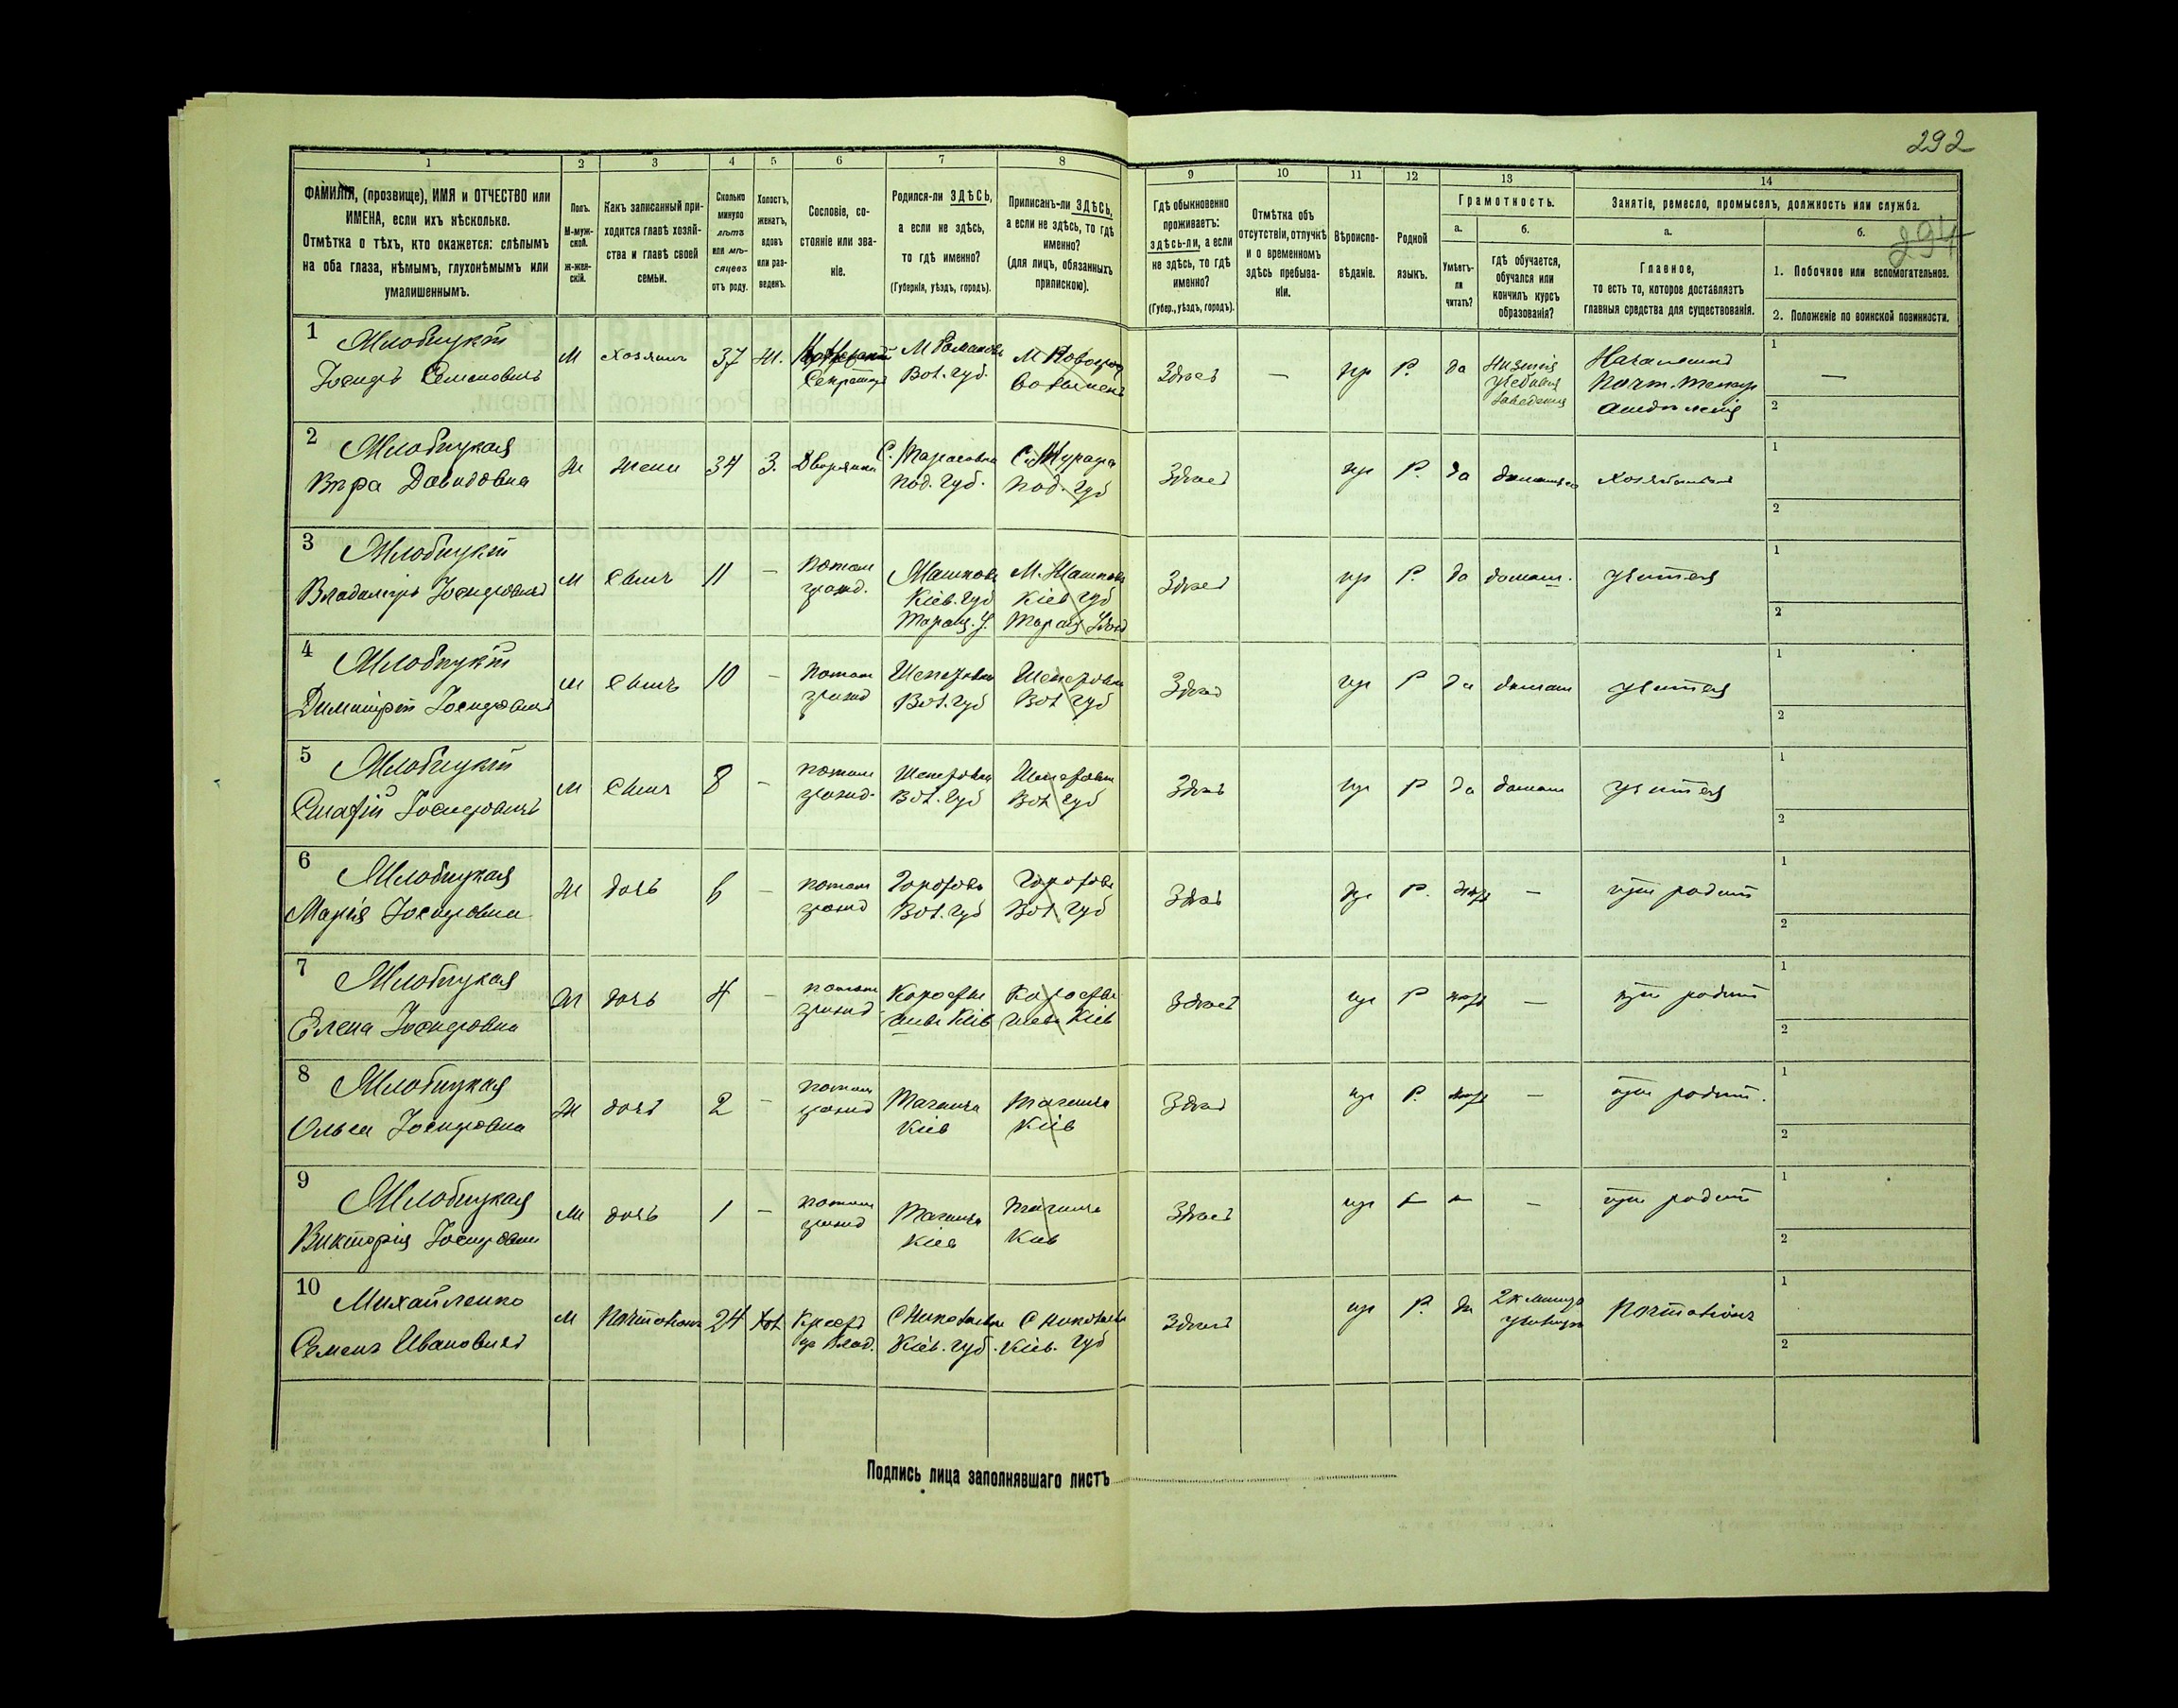 292
294
1 2 3 4 5 6 7 8 9 10 11 12 13 14
ФАМИЛІЯ, (прозвище), ИМЯ и ОТЧЕСТВО или
ИМЕНА, если ихъ нѣсколько.
Отмѣтка о тѣхъ, кто окажется: слѣпымъ
на оба глаза, нѣмымъ, глухонѣмымъ или
умалишеннымъ.
Полъ.
М-муж-
ской.
Ж-жен-
скій.
Какъ записанный при-
ходится главѣ хозяй-
ства и главѣ своей
семьи.
Сколько
минуло
лѣтъ
или мѣ-
сяцевъ
отъ роду.
Холостъ,
женатъ,
вдовъ
или раз-
веденъ.
Сословіе, со-
стояніе или зва-
ніе.
Родился-ли ЗДѢСЬ,
а если не здѣсь,
то гдѣ именно?
(Губернія, уѣздъ, городъ).
Приписанъ-ли ЗДѢСЬ,
а если не здѣсь, то гдѣ
именно?
(для лицъ, обязанныхъ
припискою).
Гдѣ обыкновенно
проживаетъ:
здѣсь-ли, а если
не здѣсь, то гдѣ
именно?
(Губер., уѣздъ, городъ).
Отмѣтка объ
отсутствіи, отлучкѣ
и о временномъ
здѣсь пребыва-
ніи.
Вѣроиспо-
вѣданіе.
Родной
языкъ.
Грамотность.
а.
Умѣетъ-
ли
читать?
б.
гдѣ обучается,
обучался или
кончилъ курсъ
образованія?
Занятіе, ремесло, промыселъ, должность или служба.
а.
Главное,
то есть то, которое доставляетъ
главныя средства для существованія.
б.
1. Побочное или вспомогательное.
2. Положеніе по воинской повинности.
1 Млобицкій
Іосифъ Семеновичъ
М хозяинъ 37 Ж.
Секретарь
М Романовъ
Вол. губ.
Здѣсь — пр Р. да
Низшія
учебныя
заведенія
Начальникъ
Почт. Телегр
отдѣленія
—
2 Млобицкая
Вѣра Давидовна
Ж жена 34 З. Дворянка
С. Тарасовка
Под. губ.
С. Мурафа
Под. губ
Здѣсь пр Р. да
3 Млобицкій
Владиміръ Іосифовичъ
М сынъ 11 —
потом
гражд.
Машковъ
Кіев. губ
Таращ. у.
М. Машковъ
Кіев губ
Таращ
Здѣсь пр Р. да домаш. учится
4 Млобицкій
Димитрій Іосифовичъ
М сынъ 10 —
потом
гражд
Шепетовка
Вол. губ
Шепетовка
Вол губ
Здѣсь пр Р да домаш учится
5 Млобицкій
Іосифовичъ
М сынъ 8 —
потом
гражд.
Шепетовка
Вол. губ
Шепетовка
Вол губ
Здѣсь пр Р да домаш учится
6 Млобицкая
Марія Іосифовна
Ж дочь 6 —
потом
гражд
Вол. губ
Вол. губ
Здѣсь пр Р. — при родит
7 Млобицкая
Елена Іосифовна
Ж дочь 4 —
потом
гражд
Коросты
шевъ Кіев
Коросты
шевъ Кіев
Здѣсь пр Р — при родит
8 Млобицкая
Ольга Іосифовна
Ж дочь 2 —
потом
гражд
Таганча
Кіев
Таганча
Кіев
Здѣсь пр Р. — при родит.
9 Млобицкая
Викторія Іосифовна
М дочь 1 —
потом
гражд
Таганча
Кіев
Таганча
Кіев
Здѣсь пр — — — при родит
10 Михайленко
Семенъ Ивановичъ
М Почталіонъ 24 хол
Крест
Влад.
С Николаевка
Кіев. губ.
С Николаевка
Кіев. губ
Здѣсь пр Р. да
2х
училище
Почталіонъ
Подпись лица заполнявшаго листъ